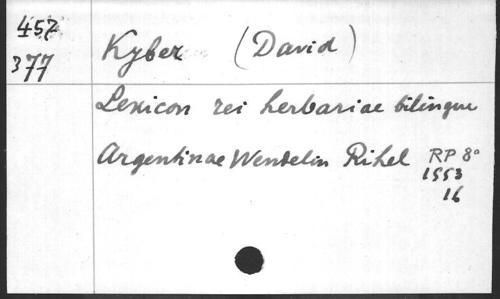 457
377
Kyber (David)
Lexicon rei herbariae bilingue
Argentinae Wendelin Rihel RP 8°
1553
16